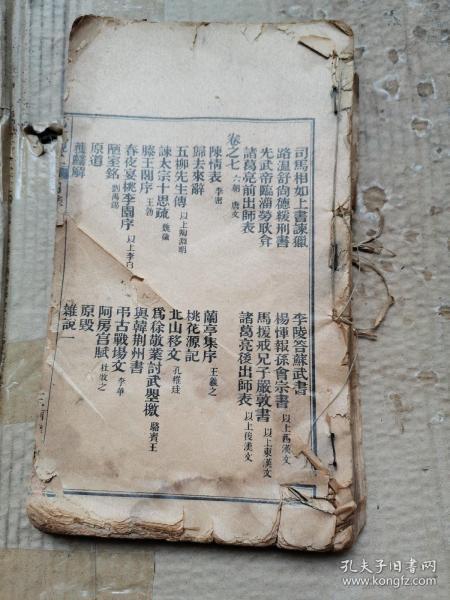 司馬相如上書諫獵
李陵答蘇武書
路溫舒尚德緩刑書
楊惲報孫會宗書 以上西漢文
光武帝臨淄勞耿弇
馬援戒兄子嚴敦書 以上東漢文
諸葛亮前出師表
諸葛亮後出師表 以上後漢文
卷之七 六朝 唐文
陳情表 李密
蘭亭集序 王羲之
歸去來辭
桃花源記
五柳先生傳 以上陶淵明
北山移文 孔稚珪
諫太宗十思疏 魏徵
為徐敬業討武曌檄 駱賓王
滕王閣序 王勃
與韓荊州書
春夜宴桃李園序 以上李白
弔古戰場文 李華
陋室銘 劉禹錫
阿房宮賦 杜牧之
原道
原毀
獲麟解
雜說一
孔夫子旧书网
www.kongfz.com